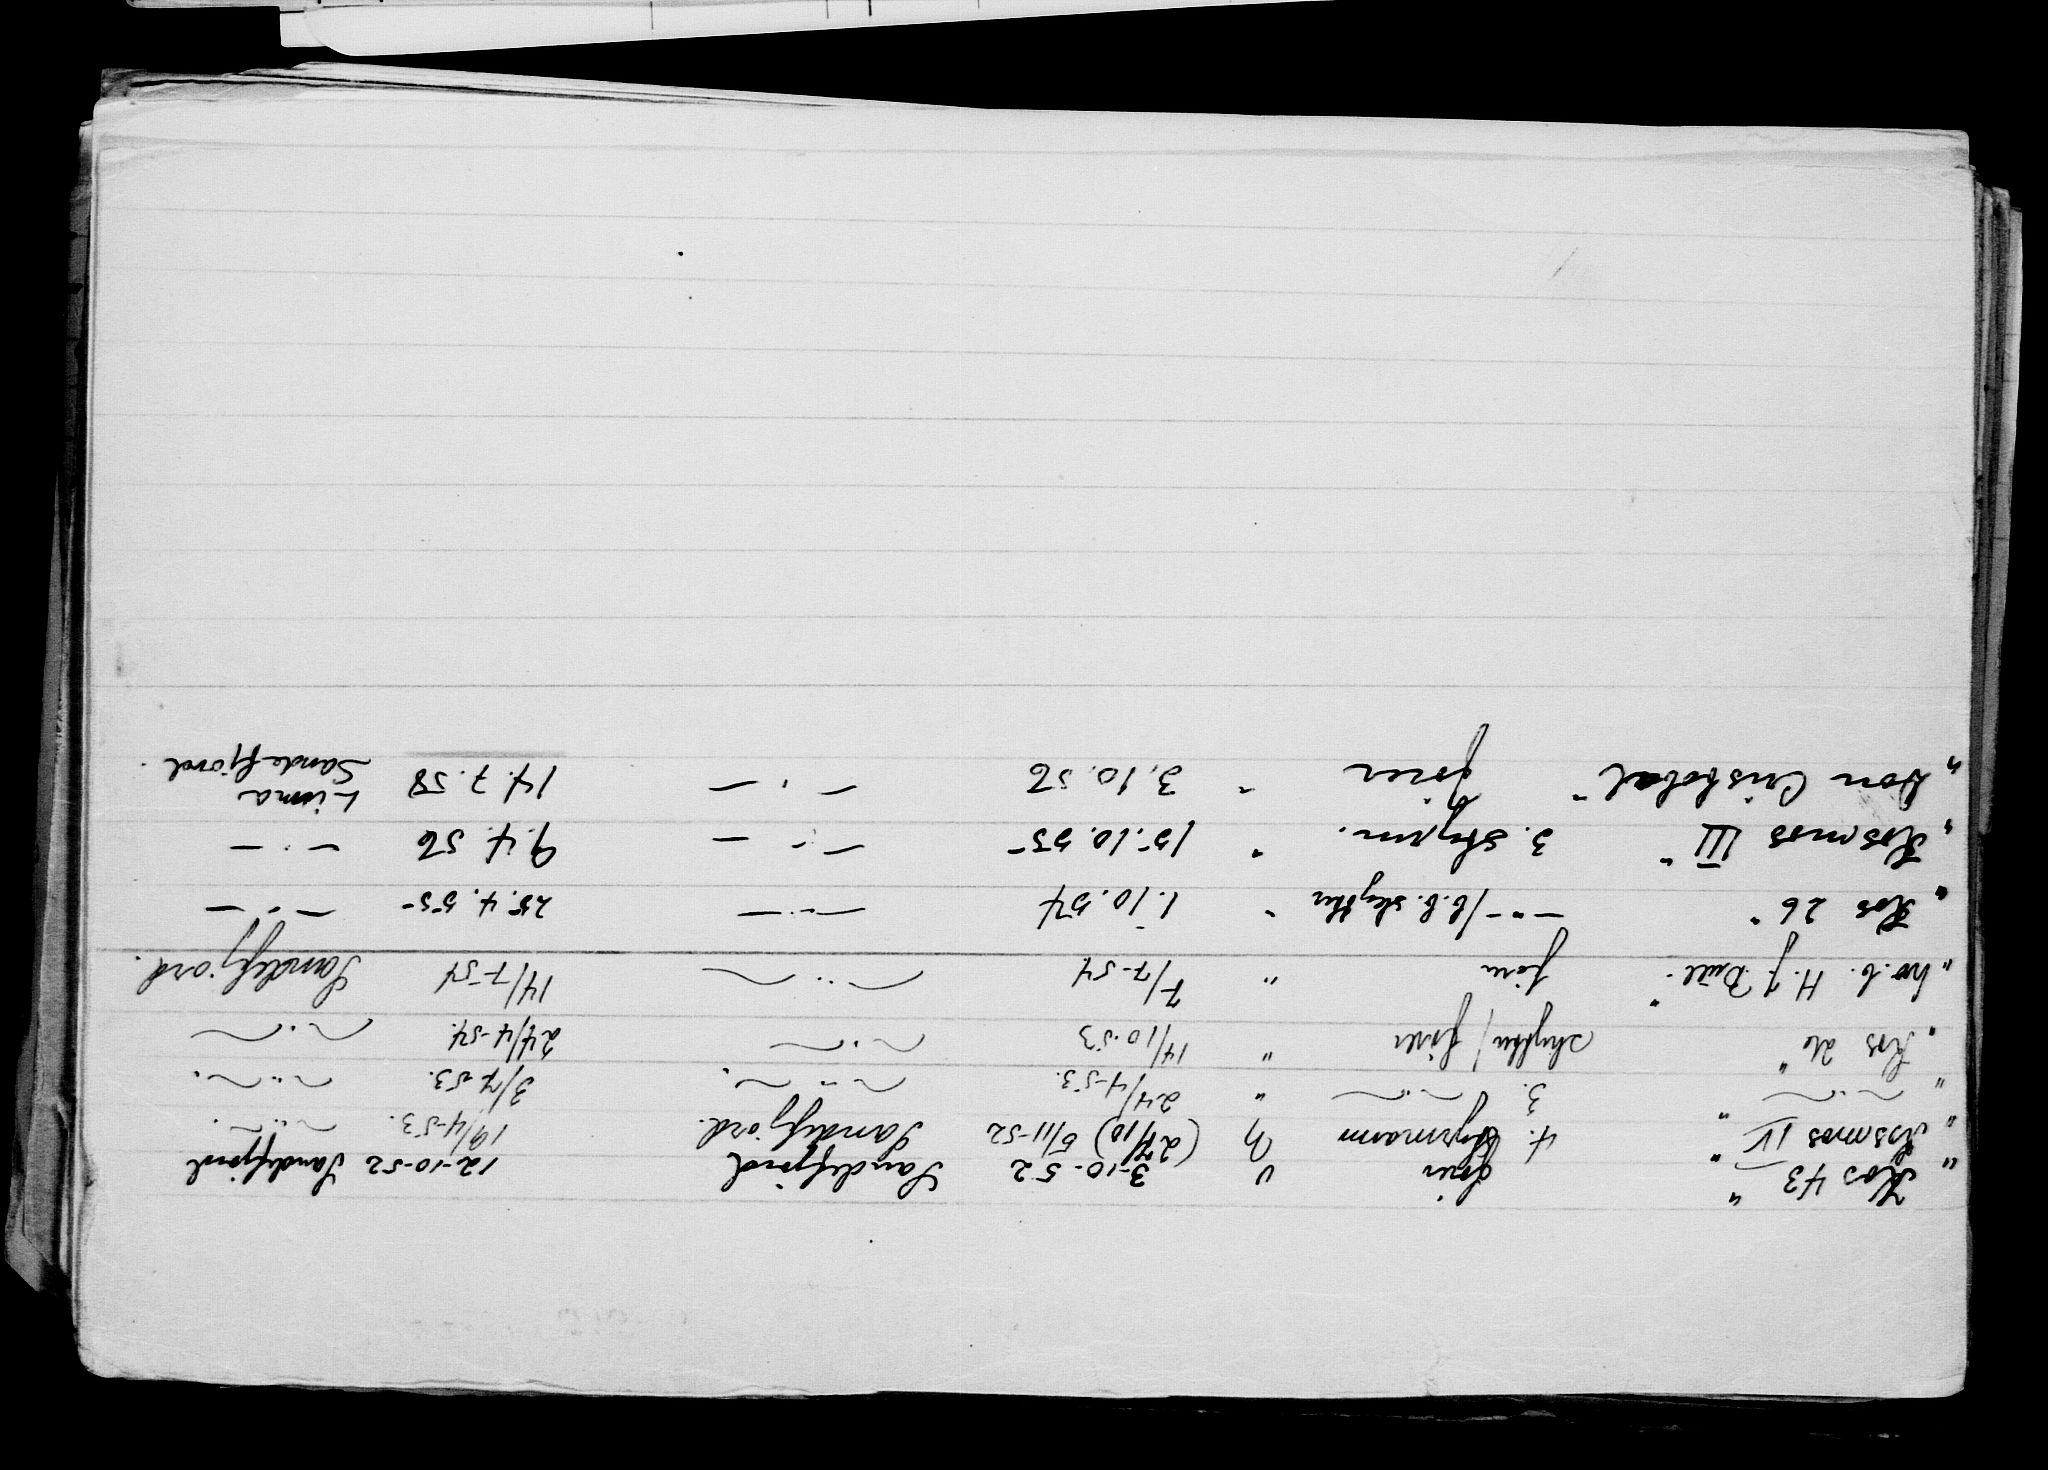 "Kos 43" fører U 3-10-52 Sandefjord 12-10-52 Sandefjord
"Kosmos IV" 4. styrmann N (27/10) 5/11-52 Sandefjord. 19/4-53. — " —
" — " — " 3. — " — " 24/4-53. — " — 3/7-53. — " —
"Kos 26" skytter/fører " 14/10-53 — " — 24/4-54. — " —
"hv.b. H. J. Bull." fører " 7/7-54 — " — 14/7-54 Sandefjord.
"Kos 26" — " — /b.b. skytter " 1.10.54 — " — 25.4.55 — " —
"Kosmos III" 3. styrm. " 15.10.55 — " — 9.4.56 — " —
"Don Cristobal" fører " 3.10.56 — " — 14.7.58 Lima
Sandefjord.